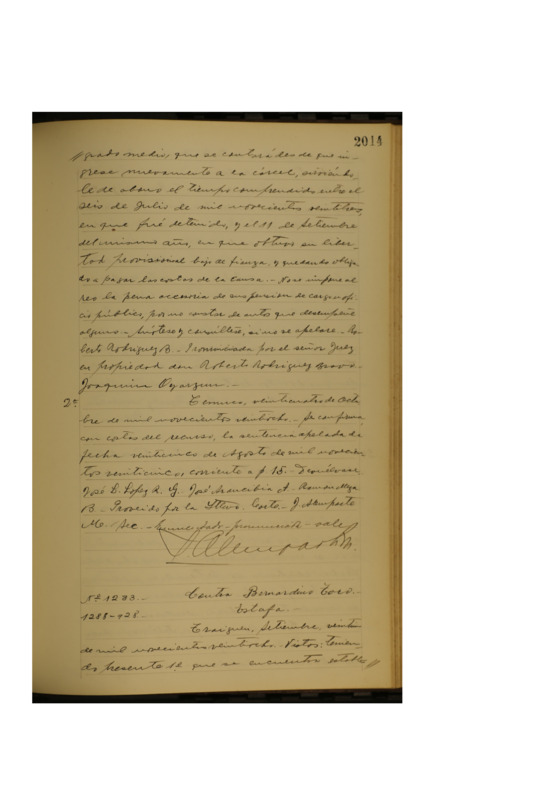 2014
// grado medio que se contará desde que in-
grese nuevamente a la cárcel, sirviéndo-
le de abono el tiempo comprendido entre el
seis de Julio de mil novecientos veintitres,
en que fué detenido, y el 11 de Setiembre
del mismo año, en que obtuvo su liber-
tad provisional bajo de fianza, y quedando obliga-
do a pagar las costas de la causa.- No se impone al
reo la pena accesoria de suspensión de cargo u ofi-
cio público, por no constar de autos que desempeñe
alguno.- Anótese y consúltese, si no se apelare.- Ro-
berto Rodriguez B.- Pronunciada por el señor Juez
en propiedad don Roberto Rodriguez Bravo.-
Joaquin Oyarzun.-
2º Temuco, veinticuatro de Octu-
bre de mil novecientos veintiocho.- Se confirma,
con costas del recurso, la sentencia apelada de
fecha veinticinco de Agosto de mil novecien-
tos veinticinco, corriente a f 18.- Devuélvase.
José E. Lopez R. G. José Arancibia A. Roman
B.- Proveido por la Iltma. Corte.- J.
Sec.- Enmendado - pronunciada - vale
Nº 1233.- Contra Bernardino Toro.-
1288-928.- Estafa.-
Traiguen, Setiembre veinte
de mil novecientos veintiocho. Vistos: tenien-
do presente 1º que se encuentra estable //